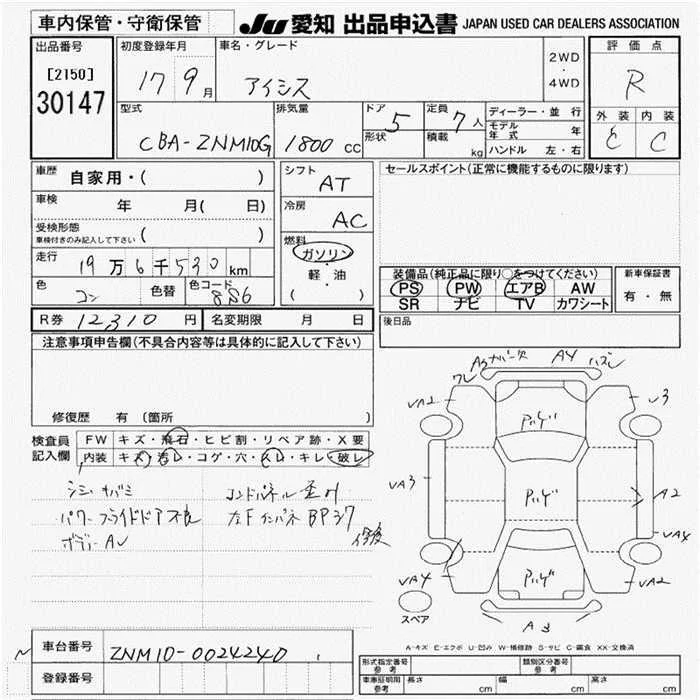 車内保管・守衛保管
JU 愛知 出品申込書 JAPAN USED CAR DEALERS ASSOCIATION
出品番号
[2150]
30147
初度登録年月
17 9月
車名・グレード
アイシス
2WD
・
4WD
評価点
R
外装 内装
C C
型式
CBA-ZNM10G
排気量
1800 cc
ドア 5
形状
定員 7人
積載 kg
ディーラー・並行
モデル年式 年
ハンドル 左・右
車歴
自家用・( )
車検
年 月( 日)
受検形態
車検付きのみ記入して下さい ( )
走行
19万6千530km
色
コン
色替
色コード
8S6
シフト
AT
冷房
AC
燃料
ガソリン
・
軽・油
( )
セールスポイント(正常に機能するものに限ります)
装備品(純正品に限り○をつけてください)
PS PW エアB AW
SR ナビ TV カワシート
新車保証書
有・無
R券 12310円
名変期限 月 日
後日品
注意事項申告欄(不具合内容等は具体的に記入して下さい)
修復歴 有(箇所 )
検査員記入欄
FW キズ・飛石・ヒビ割・リペア跡・X要
内装 キズ・汚レ・コゲ・穴・スレ・キレ・破レ
パワースライドドア不良
ボディーAU
左Fインパネ BP
A3 A4
ワレ
VA2
VA3
VA4
U3
A2
VA4
VA2
A3
スペア
A-キズ E-エクボ U-凹み W-補修跡 S-サビ C-腐食 XX-交換済
車台番号
ZNM10-0024240
登録番号
形式指定番号
参考
類別区分番号
参考
車庫証明用
参考
長さ cm 幅 cm 高さ cm